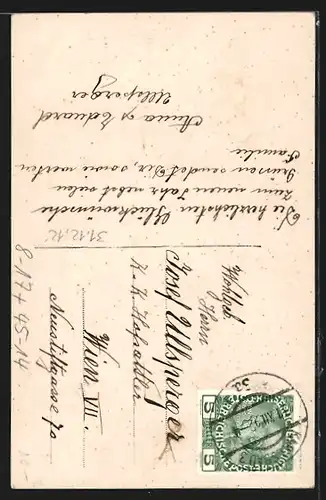 Die herzlichsten Glückwünsche
zum neuen Jahr nebst vielen
Grüssen sendet Dir, sowie werten
Familie
Anna & Eduard
Ullsperger
31.12.12
Wohlgeb.
Herrn
Josef Ullsperger
K. K. Hof
Wien VII.
Neustiftgasse 70
8-17+45-14
5
5